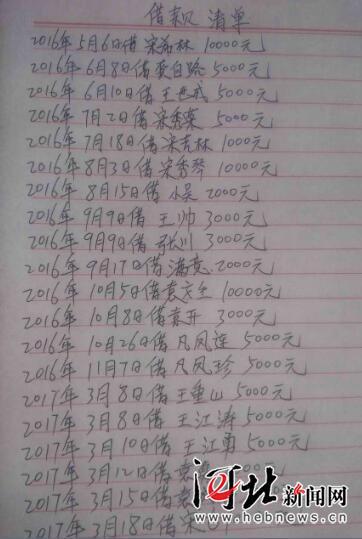 借款 清单
2016年5月6日借宋希林 10000元
2016年6月8日借贾白路 5000元
2016年6月10日借王 5000元
2016年7月2日借宋秀荣 5000元
2016年7月18日借宋吉林 1000元
2016年8月3日借宋秀琴 10000元
2016年8月15日借小吴 2000元
2016年9月9日借王帅 3000元
2016年9月9日借张川 3000元
2016年9月17日借满意 2000元
2016年10月5日借袁 10000元
2016年10月8日借袁开 3000元
2016年10月26日借凡凤莲 5000元
2016年11月7日借凡凤珍 5000元
2017年3月8日借王重山 5000元
2017年3月8日借王江涛 5000元
2017年3月10日借王江勇 5000元
2017年3月12日借袁 元
2017年3月15日借袁
2017年3月18日借宋
河北新闻网
www.hebnews.cn